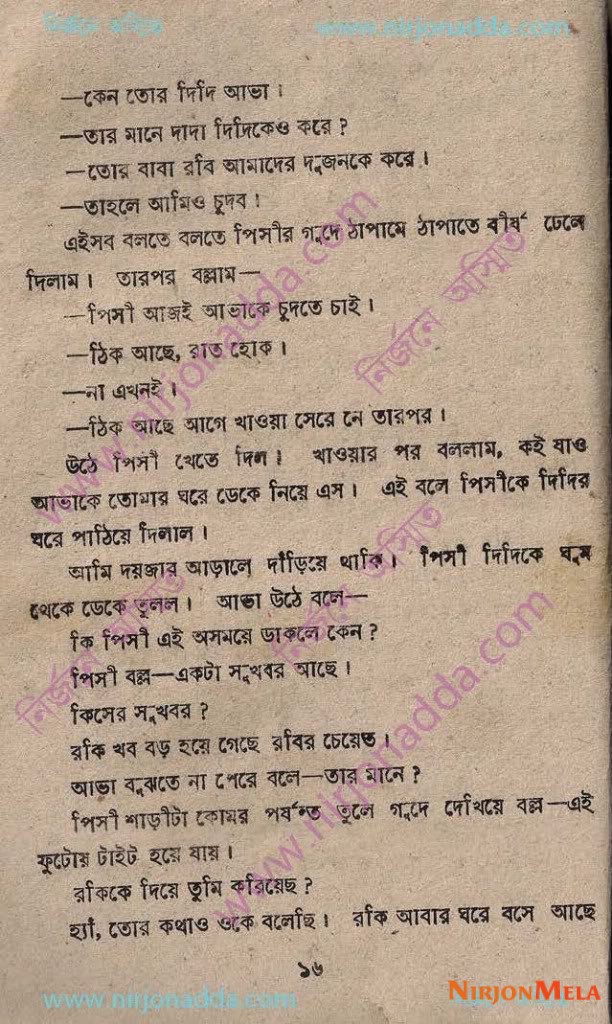 নির্জনে অস্মিত www.nirjonadda.com
—কেন তোর দিদি আভা।
—তার মানে দাদা দিদিকেও করে?
—তোর বাবা রবি আমাদের দুজনকে করে।
—তাহলে আমিও চুদব।
এইসব বলতে বলতে পিসীর গুদে ঠাপামে ঠাপাতে বীর্য ঢেলে
দিলাম। তারপর বল্লাম—
—পিসী আজই আভাকে চুদতে চাই।
—ঠিক আছে, রাত হোক।
—না এখনই।
—ঠিক আছে আগে খাওয়া সেরে নে তারপর।
উঠে পিসী খেতে দিল। খাওয়ার পর বললাম, কই যাও
আভাকে তোমার ঘরে ডেকে নিয়ে এস। এই বলে পিসীকে দিদির
ঘরে পাঠিয়ে দিলাল।
আমি দয়জার আড়ালে দাঁড়িয়ে থাকি। পিসী দিদিকে ঘুম
থেকে ডেকে তুলল। আভা উঠে বলে—
কি পিসী এই অসময়ে ডাকলে কেন?
পিসী বল্ল—একটা সুখবর আছে।
কিসের সুখবর?
রকি খব বড় হয়ে গেছে রবির চেয়েও।
আভা বুঝতে না পেরে বলে—তার মানে?
পিসী শাড়ীটা কোমর পর্যন্ত তুলে গুদে দেখিয়ে বল্ল—এই
ফুটোয় টাইট হয়ে যায়।
রকিকে দিয়ে তুমি করিয়েছ?
হ্যাঁ, তোর কথাও ওকে বলেছি। রকি আবার ঘরে বসে আছে
১৬
www.nirjonadda.com NIRJONMELA
www.nirjonadda.com
নির্জনে অস্মিত
নির্জনে অস্মিত
নির্জনে অস্মিত
www.nirjonadda.com